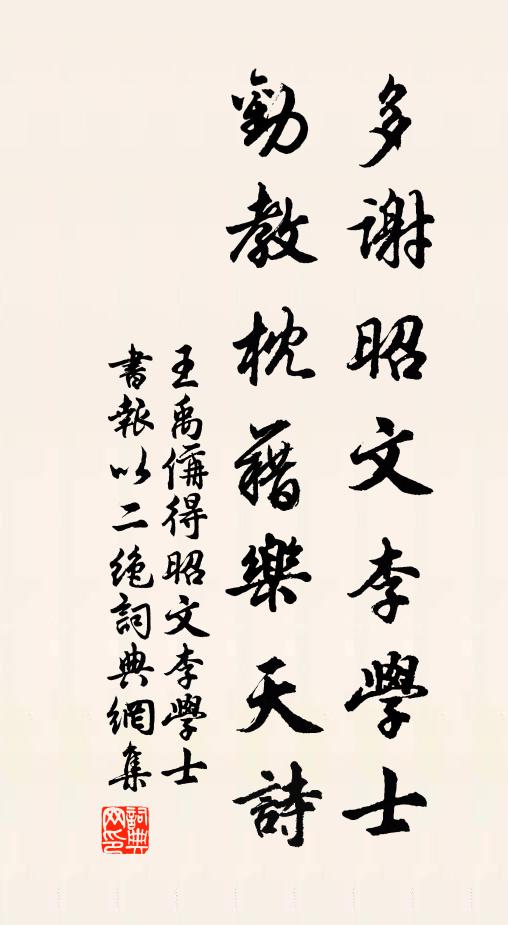 多謝昭文李學士
勸教枕藉樂天詩
王禹偁得昭文李學士
書報以二絶詞典網集
詞典网印